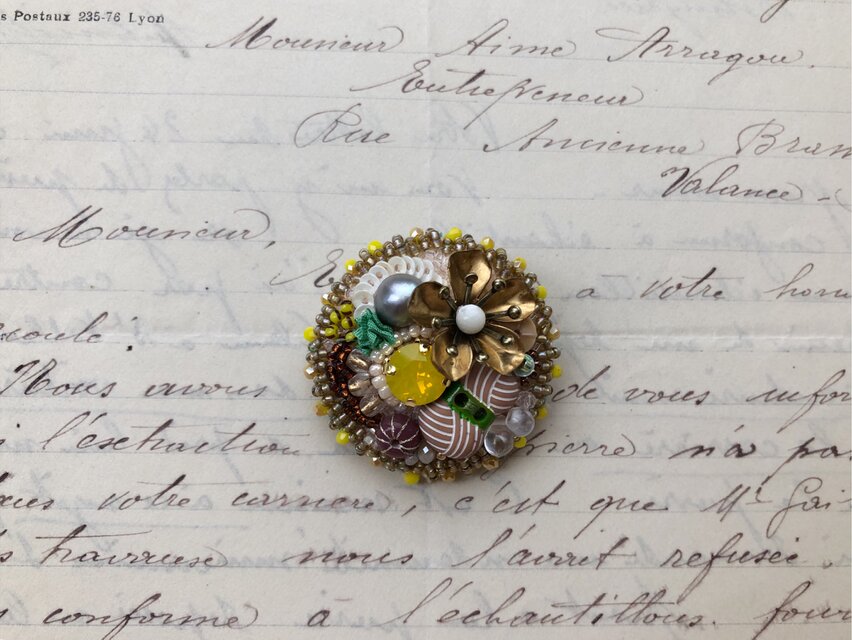 s Postaux 235-76 Lyon
Monsieur Aime Arragou.
Entrepreneur
Rue Ancienne Bram
Valance -
Monsieur,
E a votre hom
Nous avons de vous infor
l'extraction pierre n'a pa
votre carriere, c'est que Mr Gai
travrause nous l'avait refusée.
conforme à l'échantillons. four